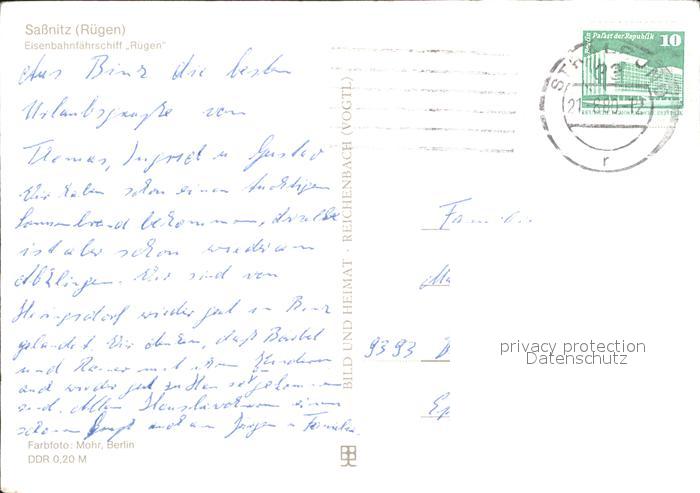 Saßnitz (Rügen)
Eisenbahnfährschiff „Rügen"
Aus Binz die besten
Urlaubsgrüße von
Thomas, Ingrid u Gustav
Wir haben schon einen tüchtigen
Sonnenbrand bekommen, derselbe
ist aber schon wieder am
Abklingen. Wir sind von
Heringsdorf wieder gut in Binz
gelandet. Wir denken, daß Bärbel
und Rainer mit ihren Kindern
auch wieder gut zu Hause
sind. Allen Hausbewohnern einen
schönen Gruß auch an Jürgen u Familie.
Farbfoto: Mohr, Berlin
DDR 0,20 M
BILD UND HEIMAT · REICHENBACH (VOGTL)
Palast der Republik 10
23
21.-6.80.-12
r
Familie
9393
privacy protection
Datenschutz